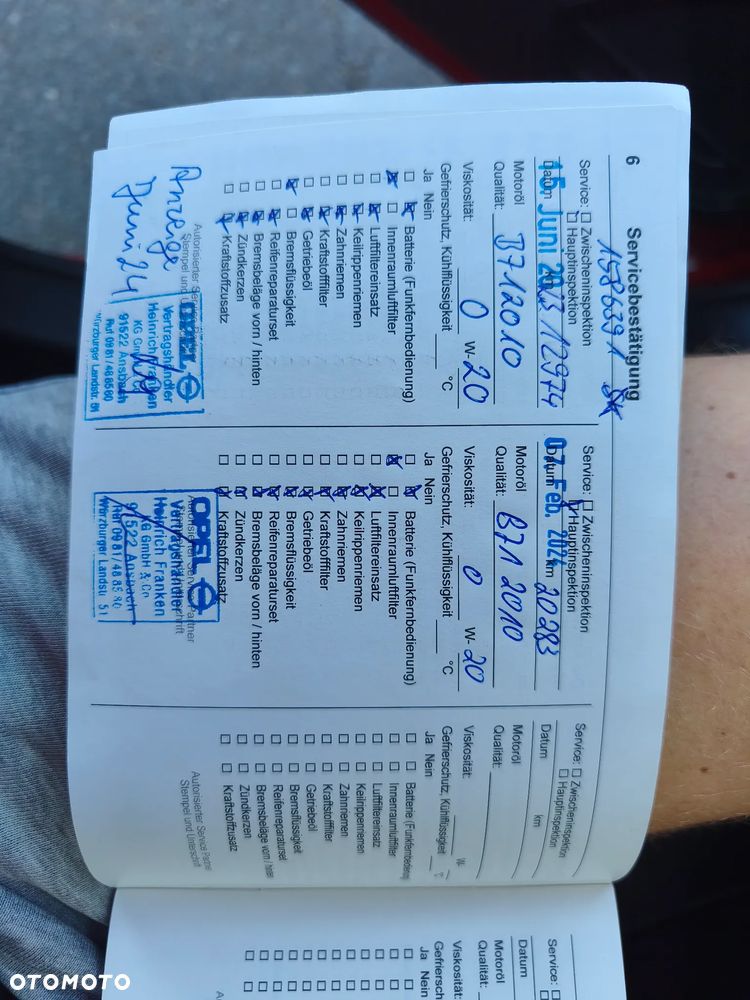 6
Servicebestätigung
1586391 SK
Service: Zwischeninspektion
Hauptinspektion
Datum 15. Juni 2023 12974
Motoröl
Qualität: B712010
Viskosität: 0 W-20
Gefrierschutz, Kühlflüssigkeit °C
Ja Nein
Batterie (Funkfernbedienung)
Innenraumluftfilter
Luftfiltereinsatz
Keilrippenriemen
Zahnriemen
Kraftstofffilter
Getriebeöl
Bremsflüssigkeit
Reifenreparaturset
Bremsbeläge vorn / hinten
Zündkerzen
Kraftstoffzusatz
Autorisierter Service
Stempel und
Anzeige
Juni 24
OPEL
Vertragshändler
Heinrich Franken
KG GmbH
91522 Ansbach
Ruf 09 81 / 48 85 80
Würzburger Landstr. 51
Service: Zwischeninspektion
Hauptinspektion
Datum 07. Feb. 2024 km 20283
Motoröl
Qualität: B71 2010
Viskosität: 0 W-20
Gefrierschutz, Kühlflüssigkeit °C
Ja Nein
Batterie (Funkfernbedienung)
Innenraumluftfilter
Luftfiltereinsatz
Keilrippenriemen
Zahnriemen
Kraftstofffilter
Getriebeöl
Bremsflüssigkeit
Reifenreparaturset
Bremsbeläge vorn / hinten
Zündkerzen
Kraftstoffzusatz
Autorisierter Service Partner
OPEL
Vertragshändler
Heinrich Franken
KG GmbH & Co
91522 Ansbach
Ruf 09 81 / 48 85 80
Würzburger Landstr. 51
Service: Zwischeninspektion
Hauptinspektion
Datum km
Motoröl
Qualität:
Viskosität: W-
Gefrierschutz, Kühlflüssigkeit °C
Ja Nein
Batterie (Funkfernbedienung)
Innenraumluftfilter
Luftfiltereinsatz
Keilrippenriemen
Zahnriemen
Kraftstofffilter
Getriebeöl
Bremsflüssigkeit
Reifenreparaturset
Bremsbeläge vorn / hinten
Zündkerzen
Kraftstoffzusatz
Autorisierter Service Partner
Stempel und Unterschrift
Service:
Datum
Motoröl
Qualität:
Viskosität:
Gefriersch
Ja Nein
OTOMOTO